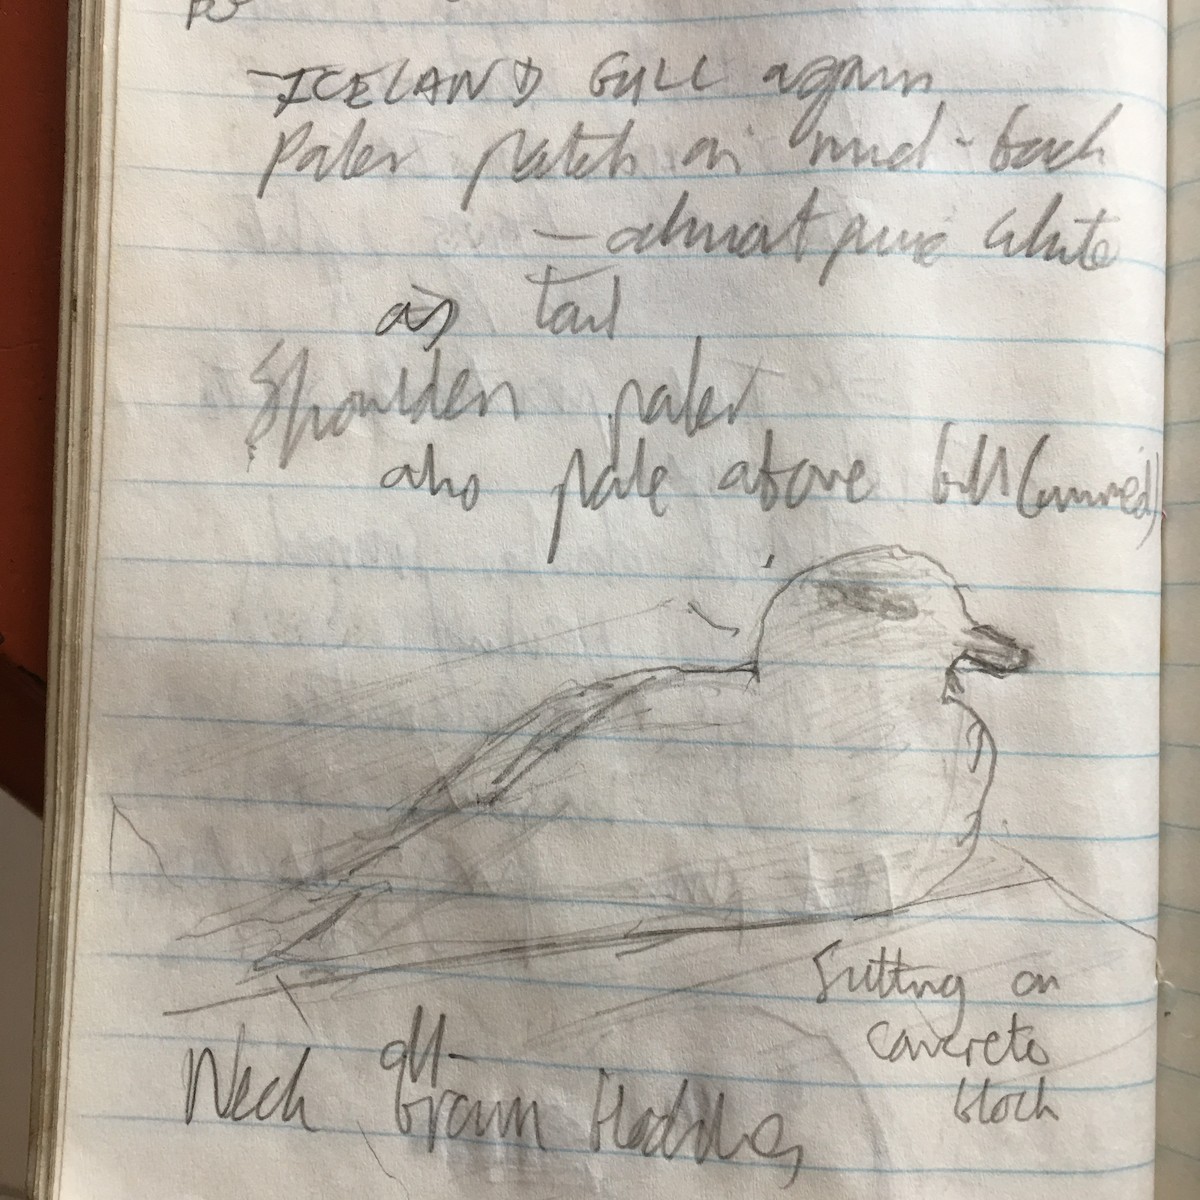 ICELAND GULL again
Paler patch on mid-back
- almost pure white
as tail
Shoulders paler
also pale above bill
Sitting on
concrete
block
Neck all-
brown